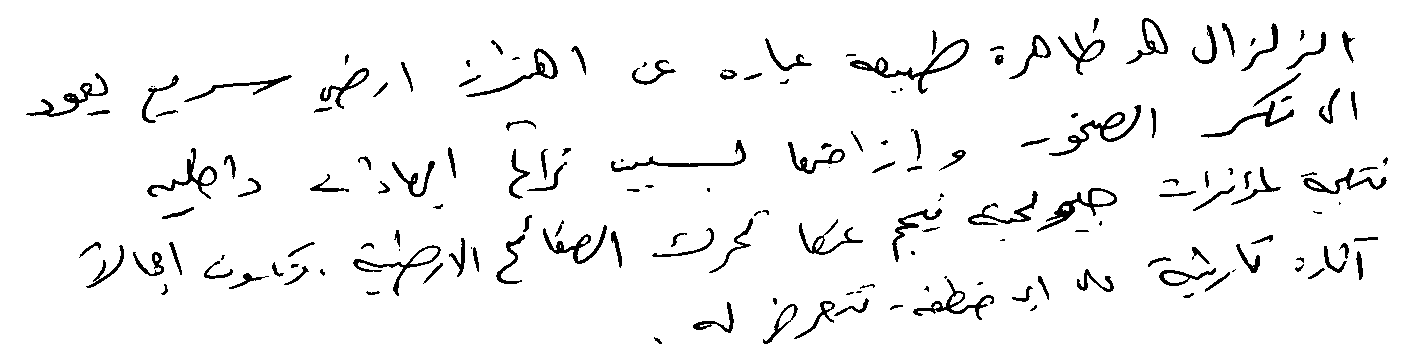 الزلزال هو ظاهرة طبيعة عباره عن اهتزاز ارضي سريع يعود
الى تكسر الصخور وإزاحتها بسبب تراكم اجهادات داخليه
نتيجة لمؤثرات جيولوجية ينجم عنها تحرك الصفائح الارضية . وتكون اجمالا
آثاره كارثية على اي منطقه تتعرض له .